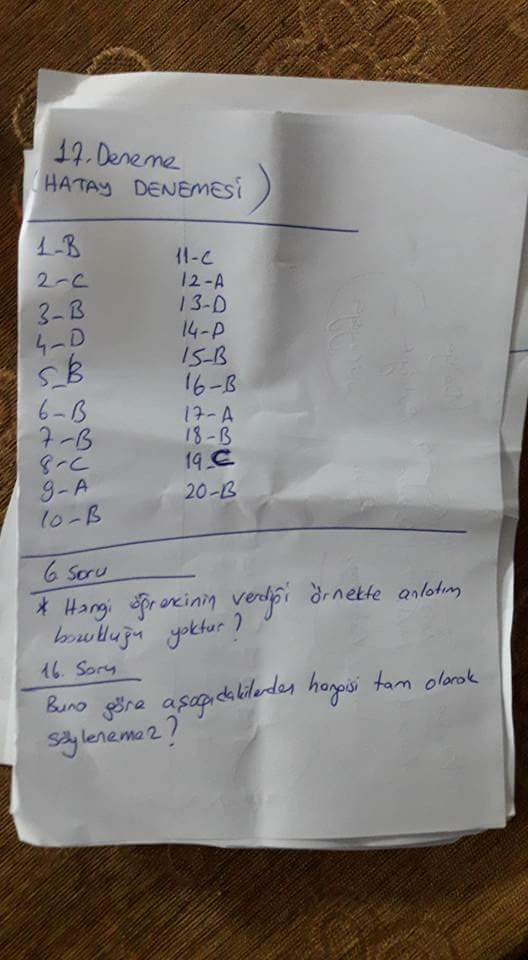 17. Deneme
(HATAY DENEMESİ)
1-B
2-C
3-B
4-D
5-B
6-B
7-B
8-C
9-A
10-B
11-C
12-A
13-D
14-D
15-B
16-B
17-A
18-B
19-C
20-B
6. Soru
* Hangi öğrencinin verdiği örnekte anlatım
bozukluğu yoktur?
16. Soru
Buna göre aşağıdakilerden hangisi tam olarak
söylenemez?